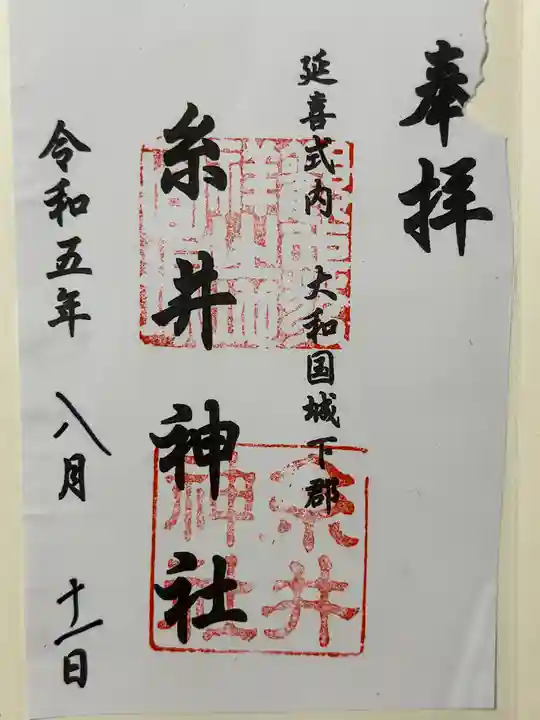 奉拝
延喜式内 大和国城下郡
糸井神社
令和五年 八月 十一日
糸井
神社